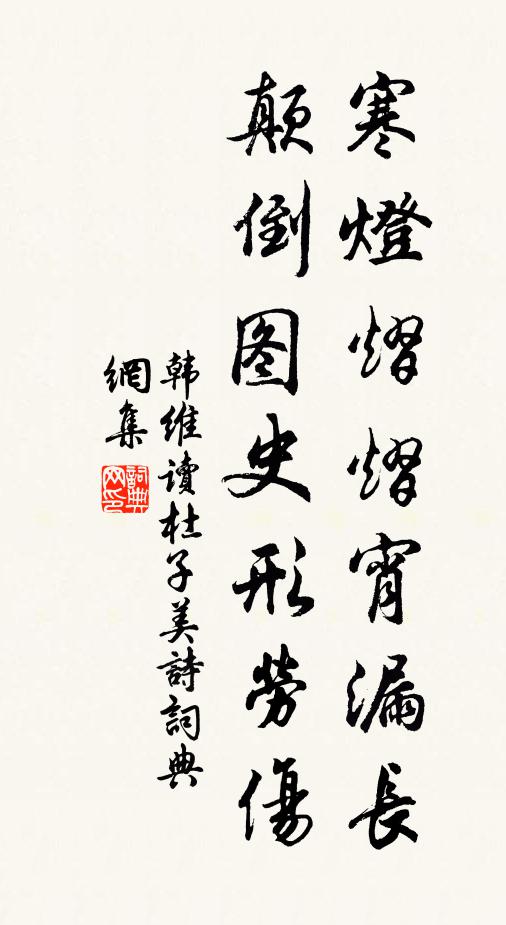 寒燈熠熠宵漏長
颠倒图史形勞傷
韩維讀杜子美詩詞典
網集
詞典網印